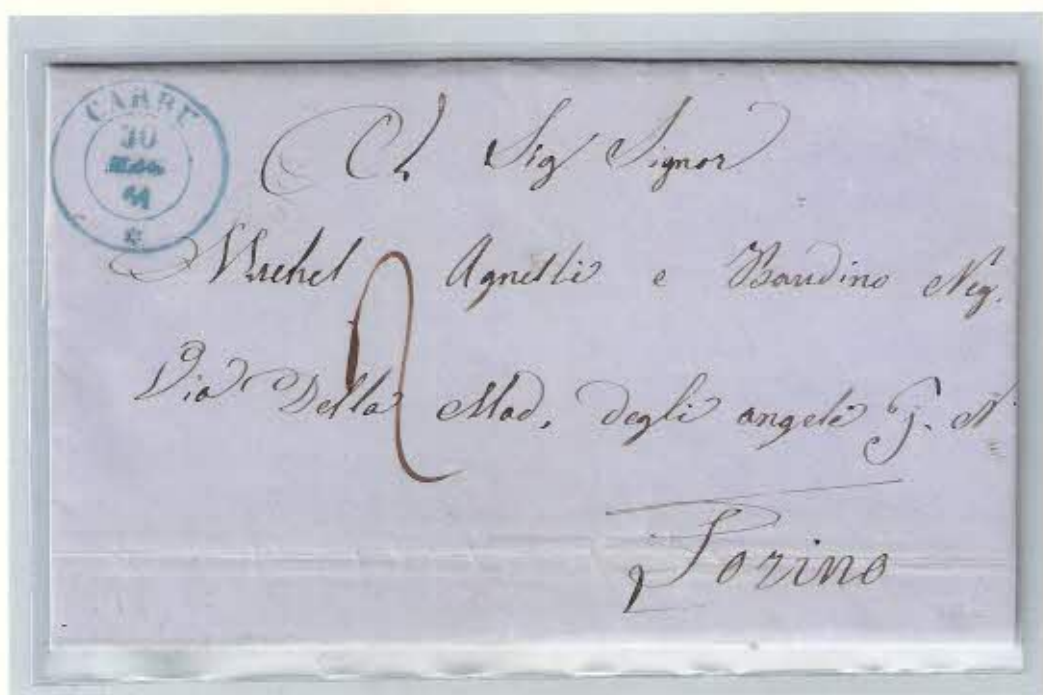 CARRU
30
MAG
61
Al Sig Signor
Michel Agnelli e Baudino Neg.
2
Via Della Mad. degli angeli
Torino